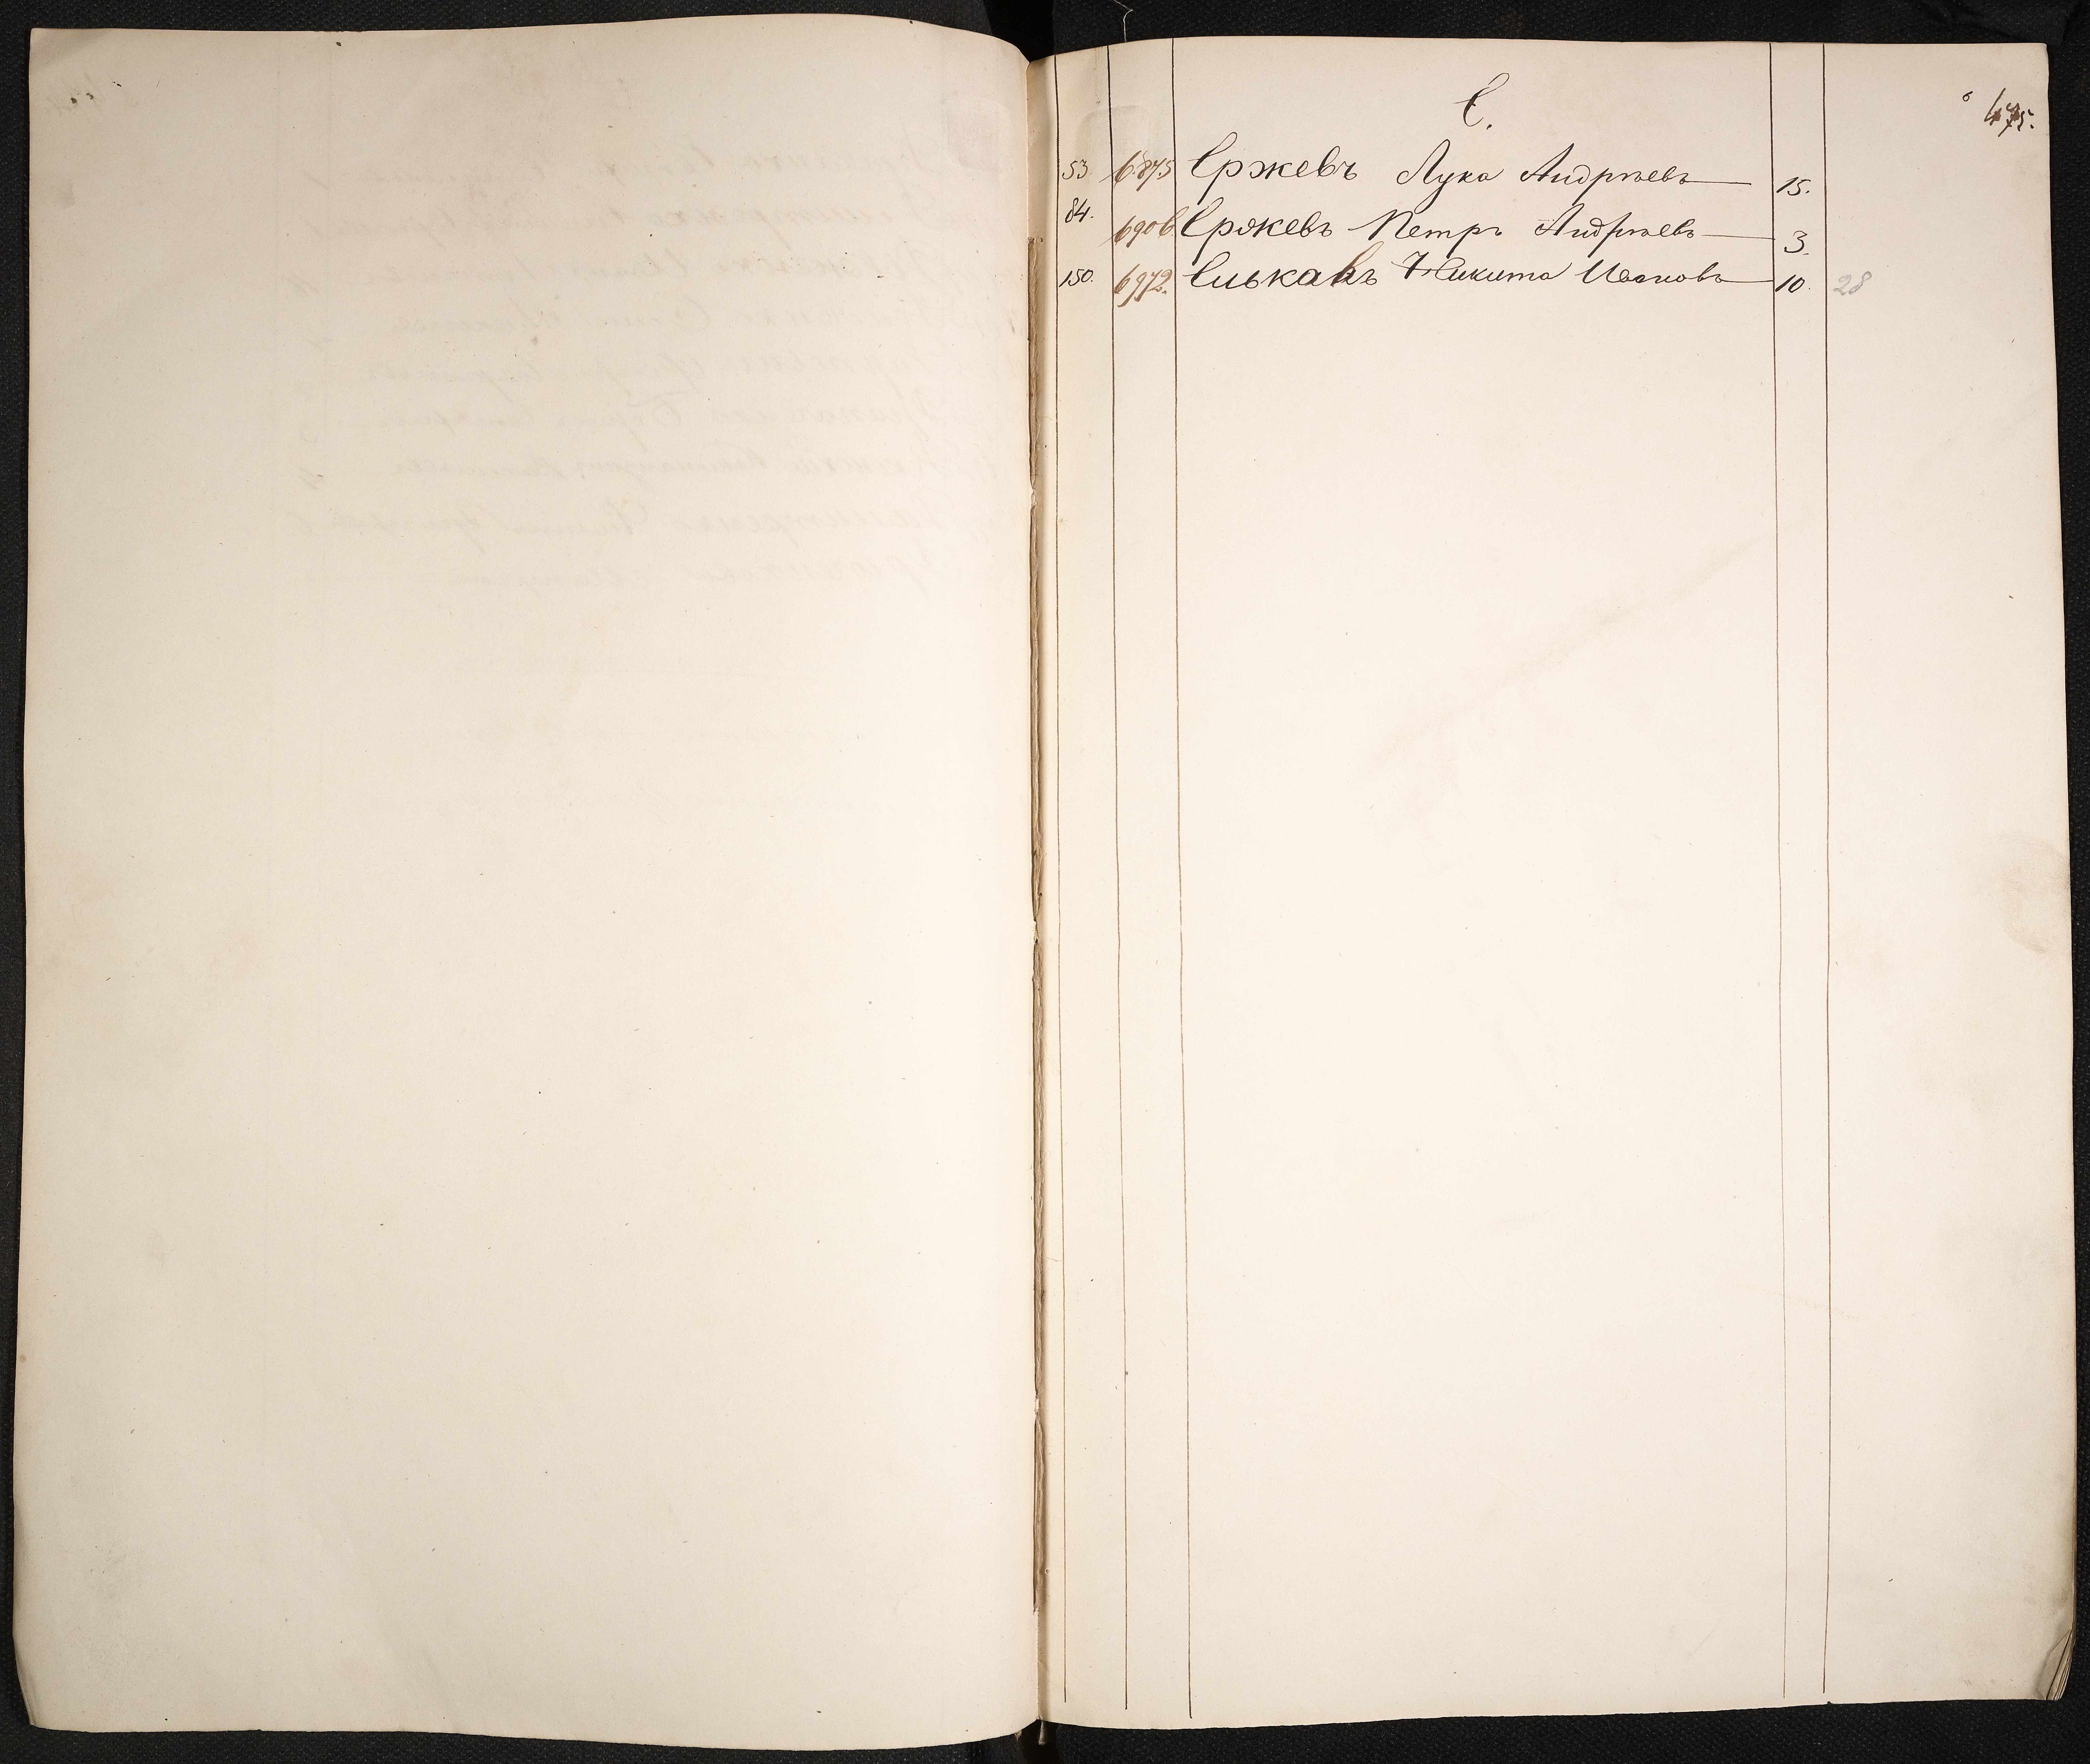 Е.
475.
53 6875 Ержевъ Лука Андрѣевъ 15.
84. 6906 Ержевъ Петръ Андрѣевъ 3.
150. 6972. Никита Ивановъ 10. 28